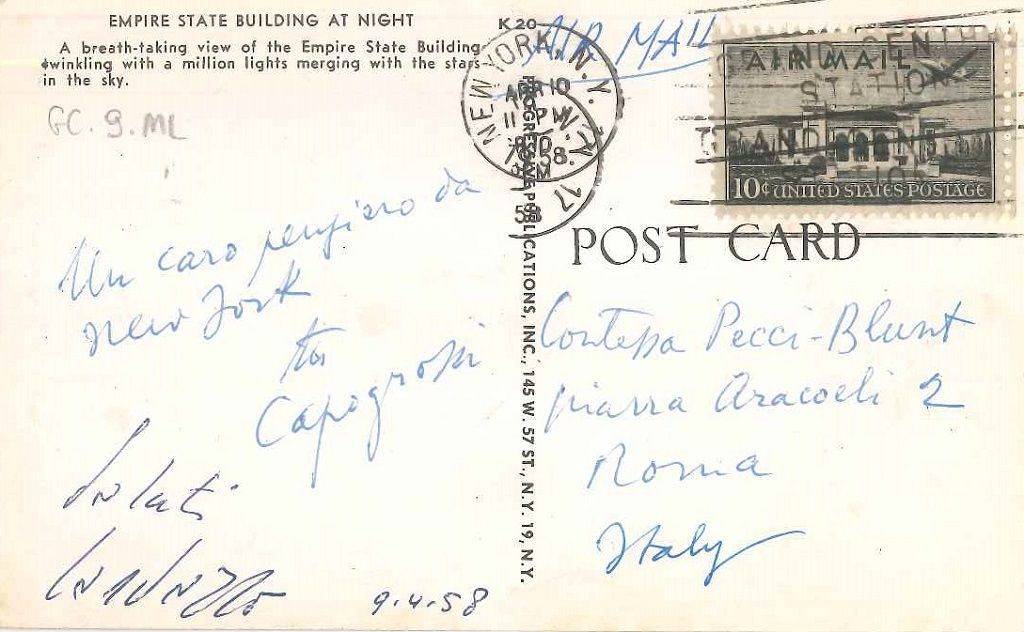 EMPIRE STATE BUILDING AT NIGHT
A breath-taking view of the Empire State Building
twinkling with a million lights merging with the stars
in the sky.
GC. 9. ML
Un caro pensiero da
New York
tuo
Capogrossi
Saluti
9.4.58
K 20
PROGRESSIVE PUBLICATIONS, INC., 145 W. 57 ST., N.Y. 19, N.Y.
AIR MAIL
NEW YORK, N.Y.
APR 10
11 PM
GRAND CENTRAL
STATION
GRAND CENT
STATION
AIR MAIL
10¢ UNITED STATES POSTAGE
POST CARD
Contessa Pecci-Blunt
piazza Aracoeli 2
Roma
Italy